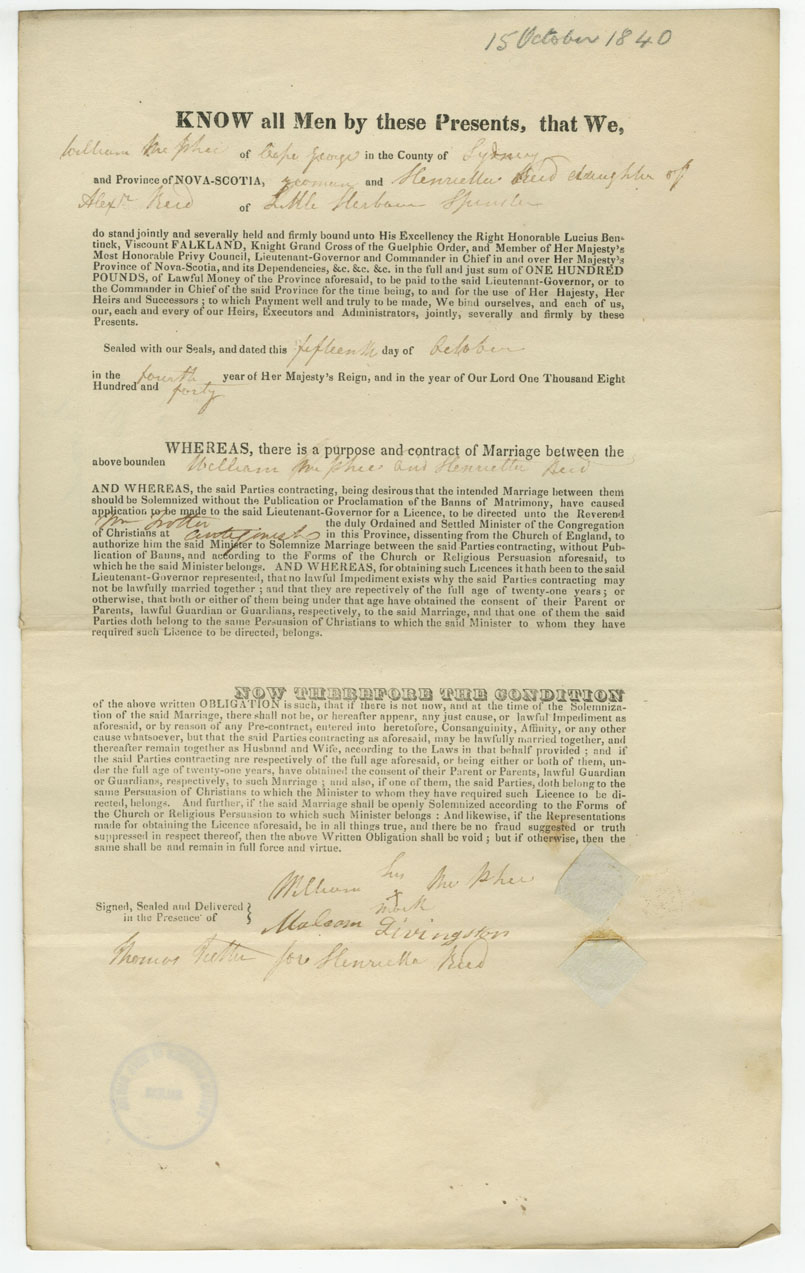 15 October 1840
KNOW all Men by these Presents, that We,
William McPhee of Cape George in the County of Sydney
and Province of NOVA-SCOTIA, yeoman and Henrietta Reid daughter of
Alexr Reid of Little Harbour Spinster
do stand jointly and severally held and firmly bound unto His Excellency the Right Honorable Lucius Ben-
tinck, Viscount FALKLAND, Knight Grand Cross of the Guelphic Order, and Member of Her Majesty's
Most Honorable Privy Council, Lieutenant-Governor and Commander in Chief in and over Her Majesty's
Province of Nova-Scotia, and its Dependencies, &c. &c. &c. in the full and just sum of ONE HUNDRED
POUNDS, of Lawful Money of the Province aforesaid, to be paid to the said Lieutenant-Governor, or to
the Commander in Chief of the said Province for the time being, to and for the use of Her Hajesty, Her
Heirs and Successors ; to which Payment well and truly to be made, We bind ourselves, and each of us,
our, each and every of our Heirs, Executors and Administrators, jointly, severally and firmly by these
Presents.
Sealed with our Seals, and dated this fifteenth day of October
in the fourth year of Her Majesty's Reign, and in the year of Our Lord One Thousand Eight
Hundred and forty
WHEREAS, there is a purpose and contract of Marriage between the
above bounden William McPhee and Henrietta Reid
AND WHEREAS, the said Parties contracting, being desirous that the intended Marriage between them
should be Solemnized without the Publication or Proclamation of the Banns of Matrimony, have caused
application to be made to the said Lieutenant-Governor for a Licence, to be directed unto the Reverend
Wm Trotter the duly Ordained and Settled Minister of the Congregation
of Christians at Antigonish in this Province, dissenting from the Church of England, to
authorize him the said Minister to Solemnize Marriage between the said Parties contracting, without Pub-
lication of Banns, and according to the Forms of the Church or Religious Persuasion aforesaid, to
which he the said Minister belongs. AND WHEREAS, for obtaining such Licences it hath been to the said
Lieutenant-Governor represented, that no lawful Impediment exists why the said Parties contracting may
not be lawfully married together ; and that they are repectively of the full age of twenty-one years ; or
otherwise, that both or either of them being under that age have obtained the consent of their Parent or
Parents, lawful Guardian or Guardians, respectively, to the said Marriage, and that one of them the said
Parties doth belong to the same Persuasion of Christians to which the said Minister to whom they have
required such Licence to be directed, belongs.
NOW THEREFORE THE CONDITION
of the above written OBLIGATION is such, that if there is not now, and at the time of the Solemniza-
tion of the said Marriage, there shall not be, or hereafter appear, any just cause, or lawful Impediment as
aforesaid, or by reason of any Pre-contract, entered into heretofore, Consanguinity, Affinity, or any other
cause whatsoever, but that the said Parties contracting as aforesaid, may be lawfully married together, and
thereafter remain together as Husband and Wife, according to the Laws in that behalf provided ; and if
the said Parties contracting are respectively of the full age aforesaid, or being either or both of them, un-
der the full age of twenty-one years, have obtained the consent of their Parent or Parents, lawful Guardian
or Guardians, respectively, to such Marriage ; and also, if one of them, the said Parties, doth belong to the
same Persuasion of Christians to which the Minister to whom they have required such Licence to be di-
rected, belongs. And further, if the said Marriage shall be openly Solemnized according to the Forms of
the Church or Religious Persuasion to which such Minister belongs : And likewise, if the Representations
made for obtaining the Licence aforesaid, be in all things true, and there be no fraud suggested or truth
suppressed in respect thereof, then the above Written Obligation shall be void ; but if otherwise, then the
same shall be and remain in full force and virtue.
William his x mark McPhee
Signed, Sealed and Delivered
in the Presence of
Malcom Livingston
Thomas for Henrietta Reid